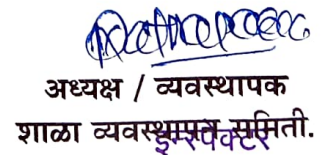 अध्यक्ष / व्यवस्थापक
शाळा व्यवस्थापन समिती.
इन्स्पेक्टर